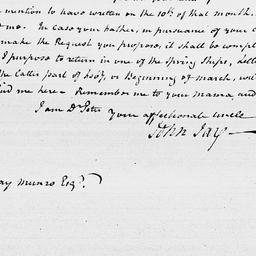 mention to have written on the 10th of that month.
me. In case your father, in pursuance of your
make the Request you propose, it shall be
I purpose to return in one of the Spring Ships,
the latter part of or Beginning of march, will
find me here – Remember me to your mama, and
I am Dr Peter your affectionate uncle
John Jay
ay Munro Esqr.